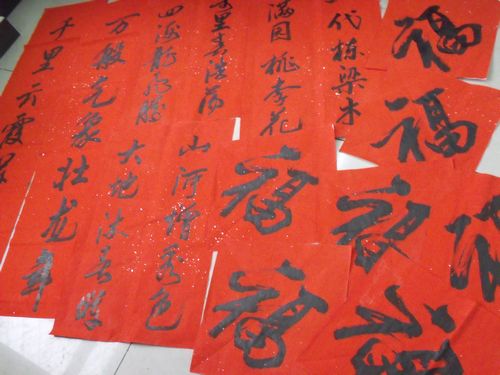 千里云霞
万般气象壮龙章
四海龙风腾
里春浩荡
满园桃李花
代栋梁木
大地沐春晖
山河增秀色
福
福
福
福
福
福